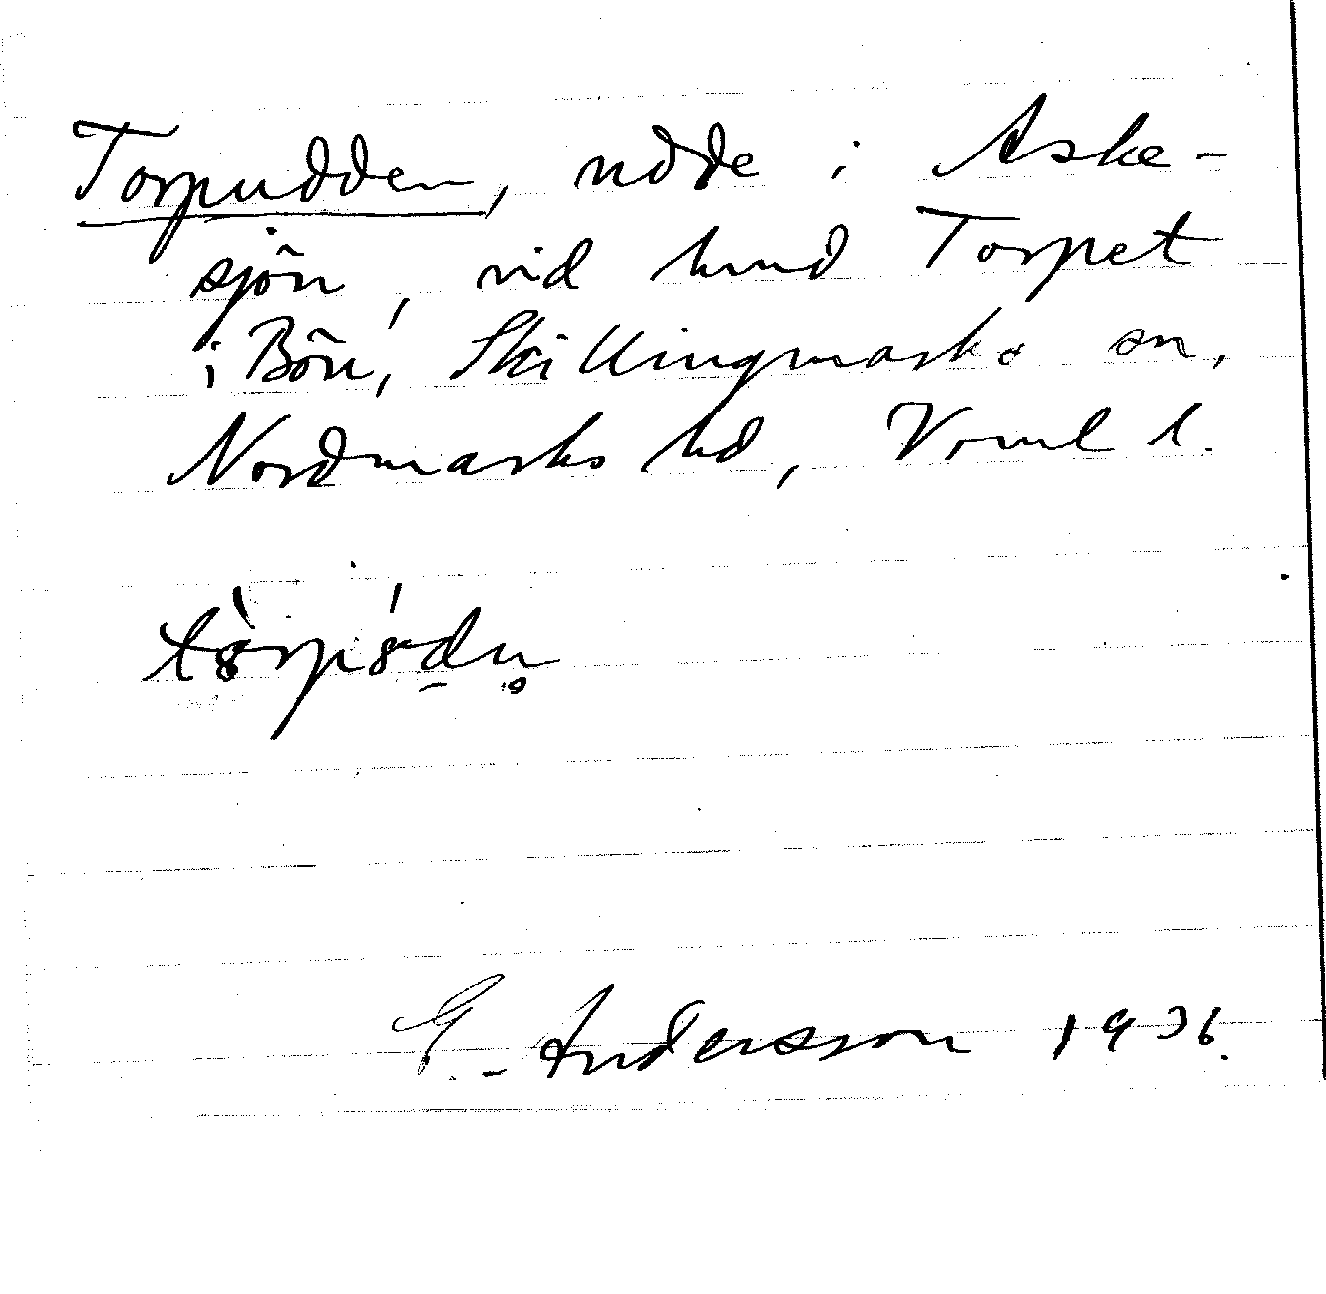 Torpudden, udde i Aske-
sjön, vid hmd Torpet
i Bön, Skillingmarks sn,
Nordmarks hd, Vrml l.
G. Andersson 1936.